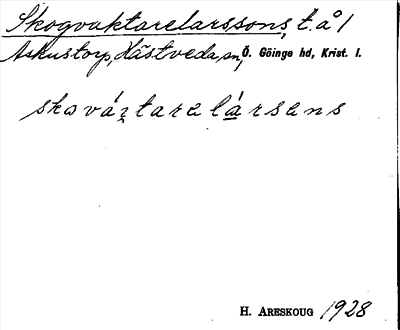 Skogvaktarelarssons, t.å. /
Askustorp, Hästveda sn, Ö. Göinge hd, Krist. l.
skaváʒtare lársens
H. ARESKOUG 1928